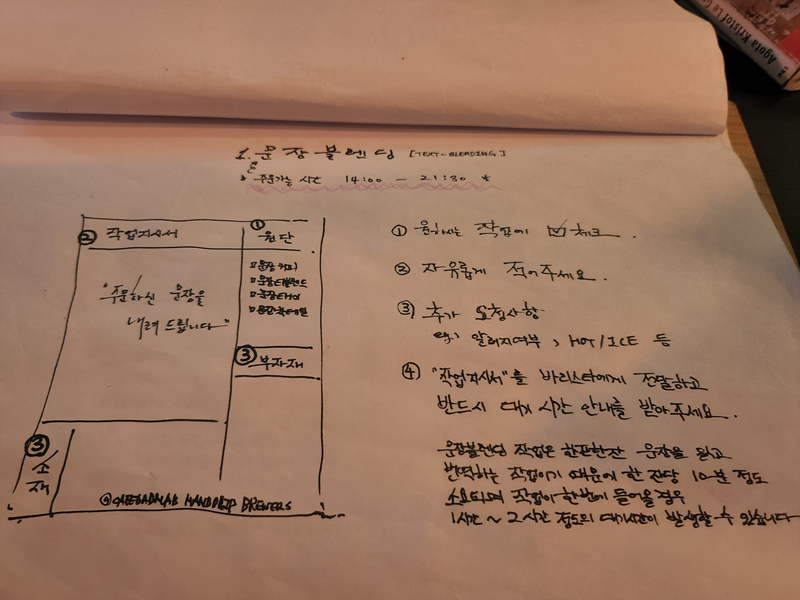 Agota Kristof Le G
1. 문장블렌딩 [TEXT-BLEADING]
* 주문가능 시간 14:00 - 21:30 *
② 작업지시서
① 원단
"주문하신 문장을
내려 드립니다"
□ 문장커피
□ 문장
□ 문장
□ 문장칵테일
③ 부자재
③ 소재
HANDDRIP BREWERS
① 원하시는 작업에 ☑ 체크.
② 자유롭게 적어주세요.
③ 추가 요청사항
ex) 알러지여부, HOT/ICE 등
④ "작업지시서"를 바리스타에게 전달하고
반드시 대기 시간 안내를 받아주세요.
문장블렌딩 작업은 한잔한잔 문장을 읽고
번역하는 작업이기 때문에 한 잔당 10분 정도
소요되며 작업이 한번에 들어올 경우
1시간 ~ 2시간 정도의 대기시간이 발생할 수 있습니다